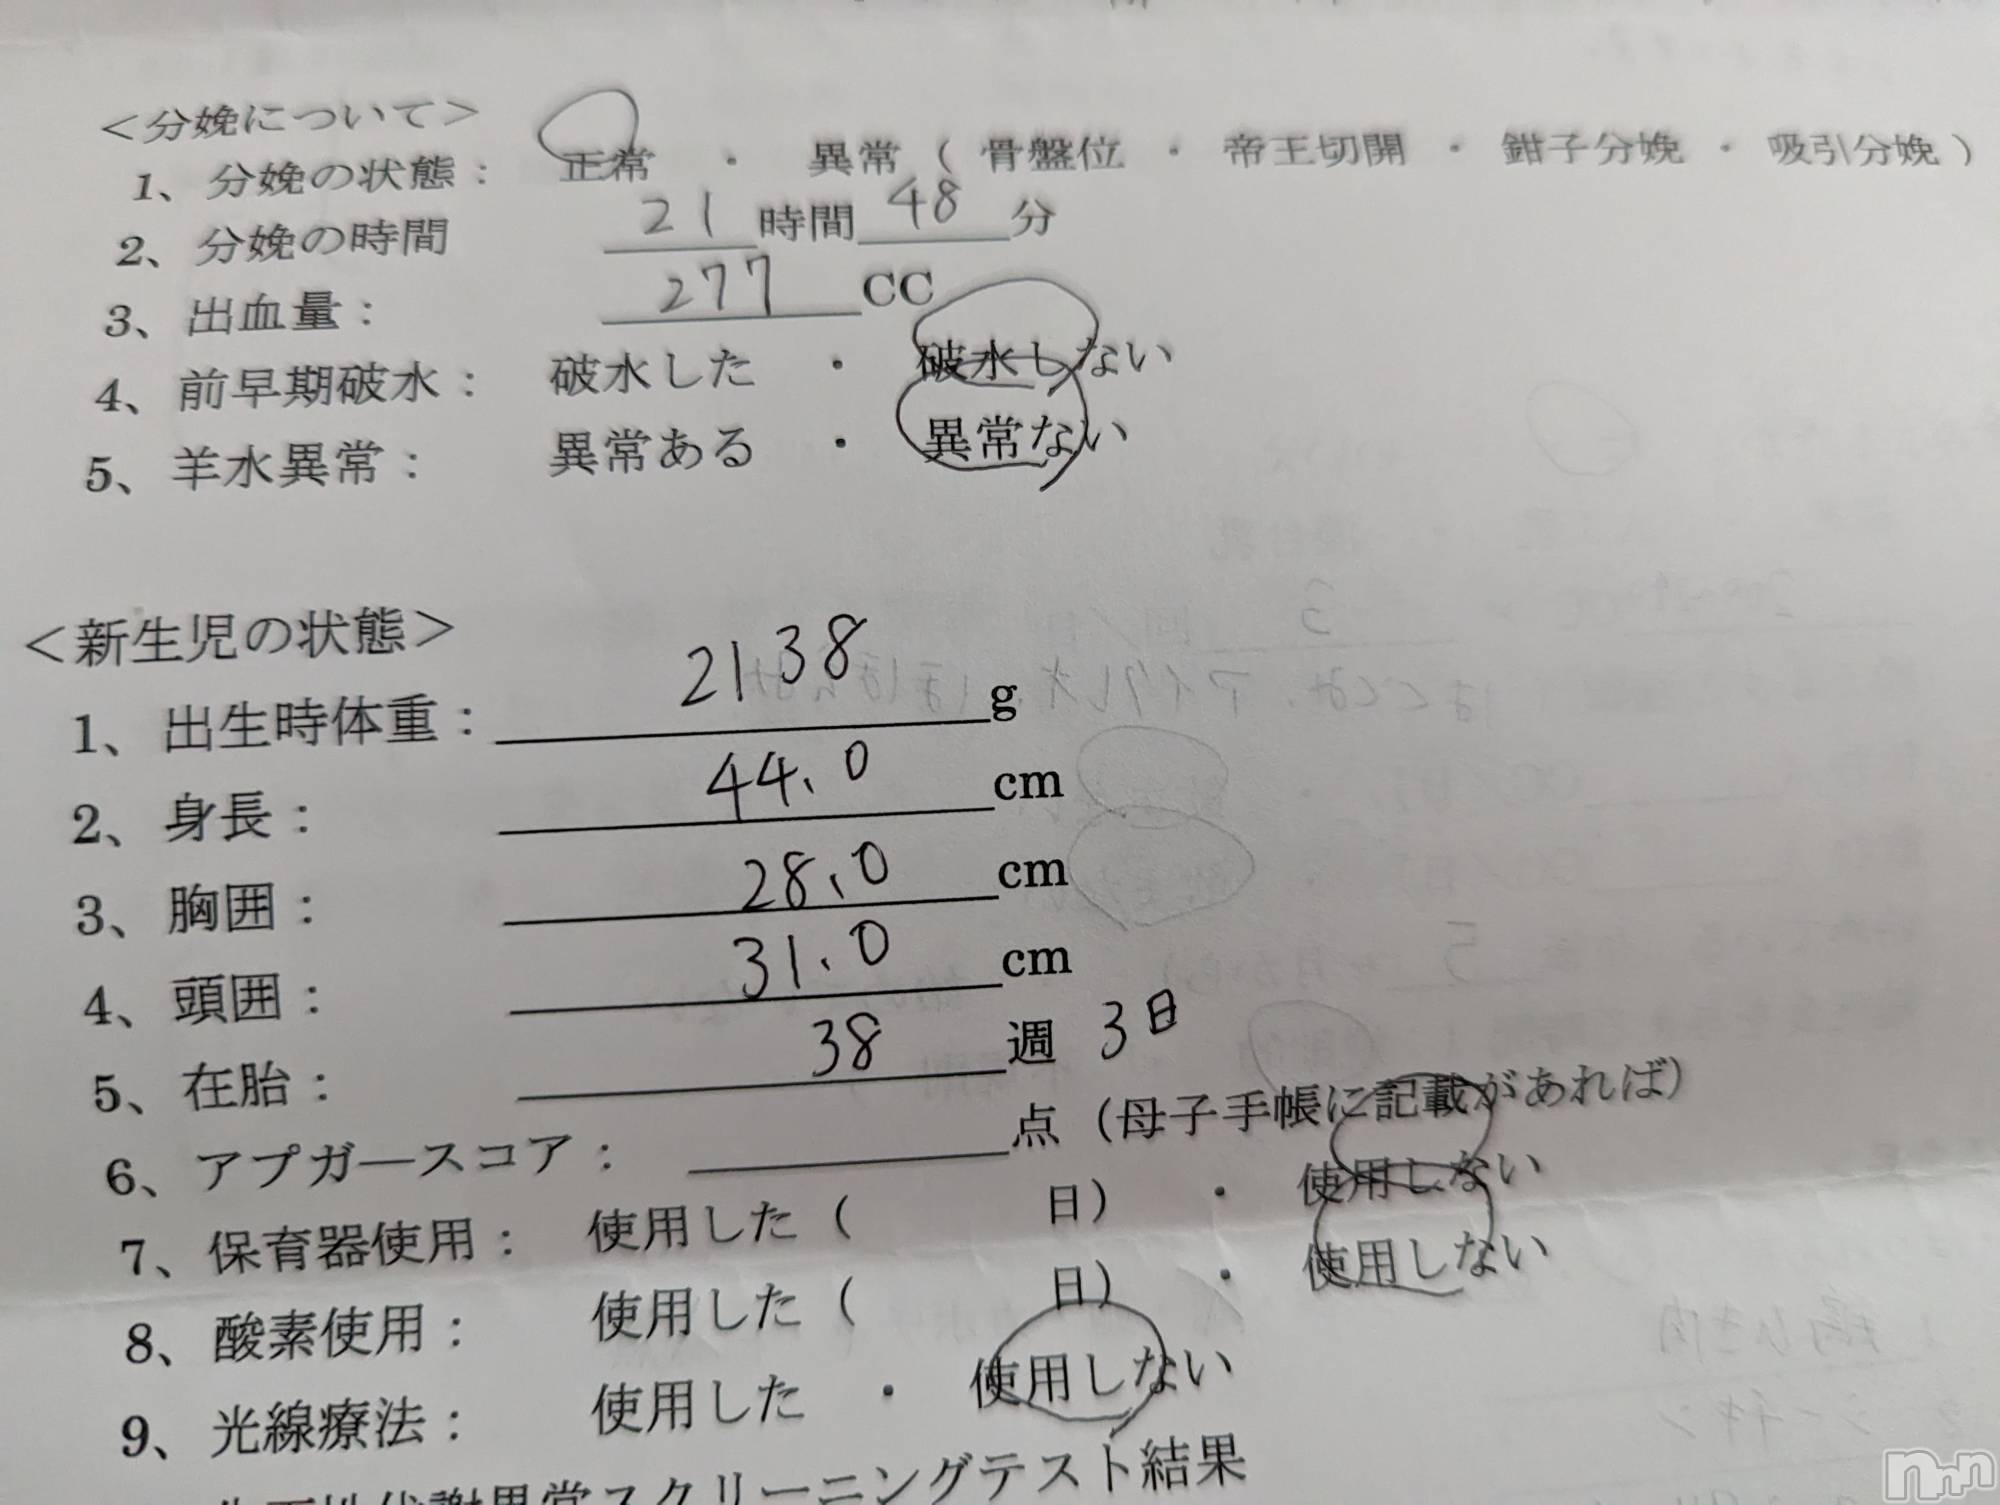 ＜分娩について＞
1、分娩の状態： 正常 ・ 異常（骨盤位 ・ 帝王切開 ・ 鉗子分娩 ・ 吸引分娩）
2、分娩の時間 21時間48分
3、出血量： 277CC
4、前早期破水： 破水した ・ 破水しない
5、羊水異常： 異常ある ・ 異常ない
＜新生児の状態＞
1、出生時体重： 2138g
2、身長： 44.0cm
3、胸囲： 28.0cm
4、頭囲： 31.0cm
5、在胎： 38週 3日
6、アプガースコア： 点（母子手帳に記載があれば）
7、保育器使用： 使用した（ 日） ・ 使用しない
8、酸素使用： 使用した（ 日） ・ 使用しない
9、光線療法： 使用した ・ 使用しない
代謝異常スクリーニングテスト結果